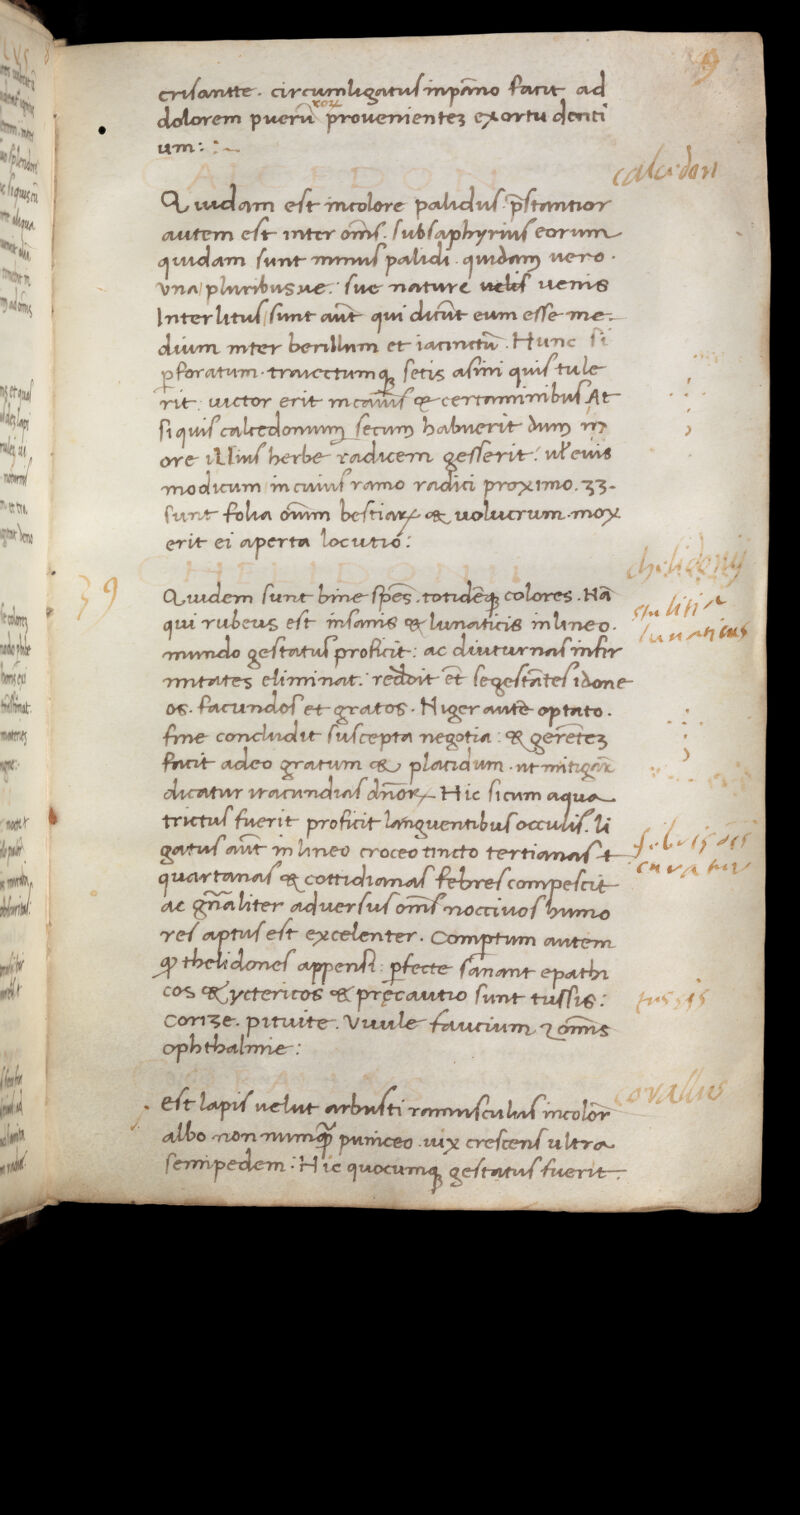 9
crisantte. circumligatus inpāno facit ad
dolorem puerū prouenientez exortu denti
um:
CALCEDON
calcidon
Quidam est incolore palidus. p̄stantior
autem est inter om̄s. subsaphyrius eorum
quidam sunt minus palidi. quidam uero.
Vna pluribusue. sue nature uelis uenis
Interlitus sunt aūt qui dicūt eum esse me
dium inter berillum et iacinctū. Hunc si
ꝑforatum. traiectumqꝫ setis asini quis tule
rit: uictor erit incaūis & certaminibus At
si quis calcedonium secum habuerit dum in
ore illius herbe radicem gesserit: uł euis
modicum in cuius ramo radici proximo. 33.
sunt folia omīm bestiaꝝ & uolucrum. mox
erit ei aperta locutio:
CHELIDONI
chelidonij
39
Quidem sunt bine spēs. totidēqꝫ colores. Nā
qui rubeus est insanis & lunaticis inlineo.
stultitia
lunaticus
mundo gestatus proficit: ac diuturnas infir
mitates eliminat. reddit et̄ segestātes idone
os. facundos et gratos. Niger autē optato.
fine concludit suscepta negotia: & gerētez
facit adeo gratum & placidum. ut mitigar̄
dicatur iracundias dn̄oꝝ. Hic si cum aqua
trictus fuerit proficit languentibus occulis. li
gatus aūt in lineo croceo tincto tertianas t
febris
curatur
quartanas & cottidianas febres compescit
ac gn̄aliter aduersus om̄s nocciuos humo
res aptus est excelenter. Comptum autem
ꝙ thelidones appensi: ꝑfecte sanant epathi
cos & yctericos & precautio sunt tussis:
tussis
Corize. pituite. Vuule faucium ⁊ om̄is
ophthalmie:
CORALLUS
corallus
est lapis uelut arbusti ramusculus incolor̄
albo non numqꝫ puniceo. uix crescens ultra
semipedem: Hic quocumqꝫ gestatus fuerit.